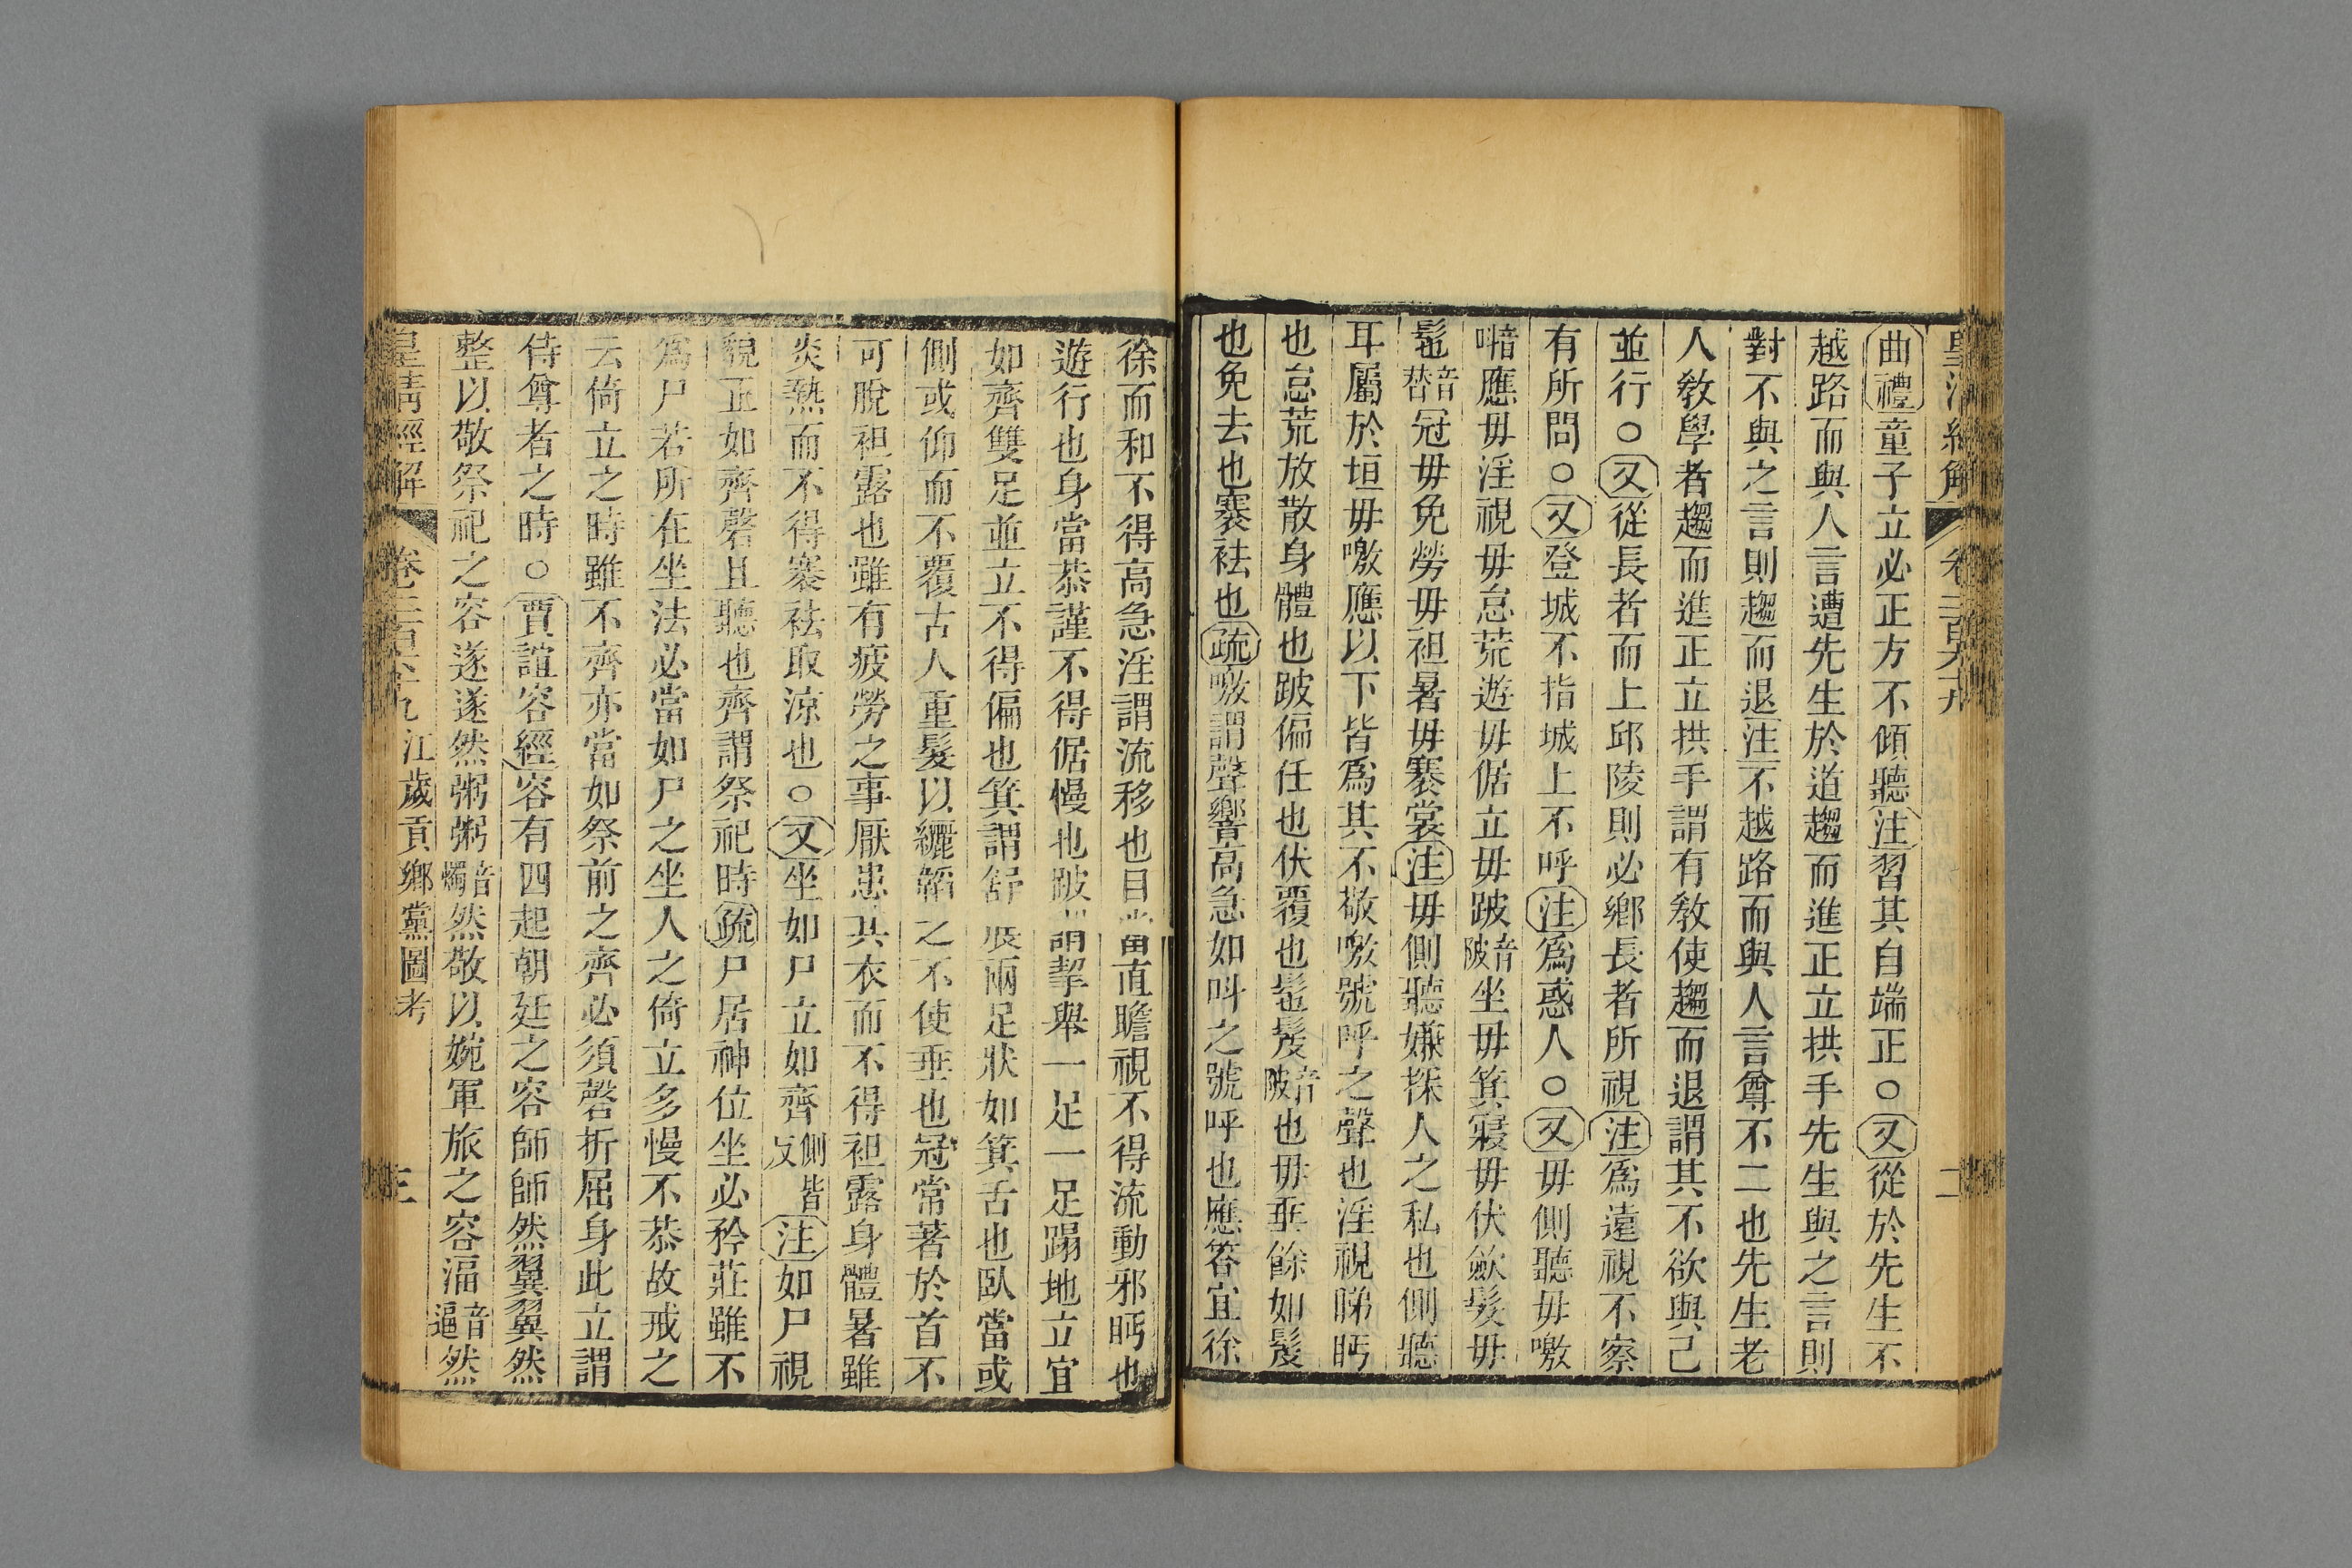 曲禮童子立必正方不傾聽注習其自端正○又從於先生不
越路而與人言遭先生於道趨而進正立拱手先生與之言則
對不與之言則趨而退注不越路而與人言尊不二也先生老
人敎學者趨而進正立拱手謂有敎使趨而退謂其不欲與己
並行○又從長者而上邱陵則必鄉長者所視注爲遠視不察
有所問○又登城不指城上不呼注爲惑人○又毋側聽毋噭
應毋淫視毋怠荒遊毋倨立毋跛音陂坐毋箕寢毋伏斂髮毋
髢音替冠毋免勞毋袒暑毋褰裳注毋側聽嫌探人之私也側聽
耳屬於垣毋噭應以下皆爲其不敬噭號呼之聲也淫視睇眄
也怠荒放散身體也跛偏任也伏覆也髢髲音陂也毋垂餘如髲
也免去也褰袪也疏噭謂聲響高急如叫之號呼也應答宜徐
徐而和不得高急淫謂流移也目當直瞻視不得流動邪眄也
遊行也身當恭謹不得倨慢也跛謂挈舉一足一足蹋地立宜
如齊雙足並立不得偏也箕謂舒展兩足狀如箕舌也臥當或
側或仰而不覆古人重髮以纚韜之不使垂也冠常著於首不
可脫袒露也雖有疲勞之事厭患其衣而不得袒露身體暑雖
炎熱而不得褰袪取涼也○又坐如尸立如齊側皆反注如尸視
貌正如齊磬且聽也齊謂祭祀時疏尸居神位坐必矜莊雖不
爲尸若所在坐法必當如尸之坐人之倚立多慢不恭故戒之
云倚立之時雖不齊亦當如祭前之齊必須磬折屈身此立謂
侍尊者之時○賈誼容經容有四起朝廷之容師師然翼翼然
整以敬祭祀之容遂遂然粥粥音燭然敬以婉軍旅之容湢音逼然
皇淸經解 卷二百六十九 江歲貢鄉黨圖考 三